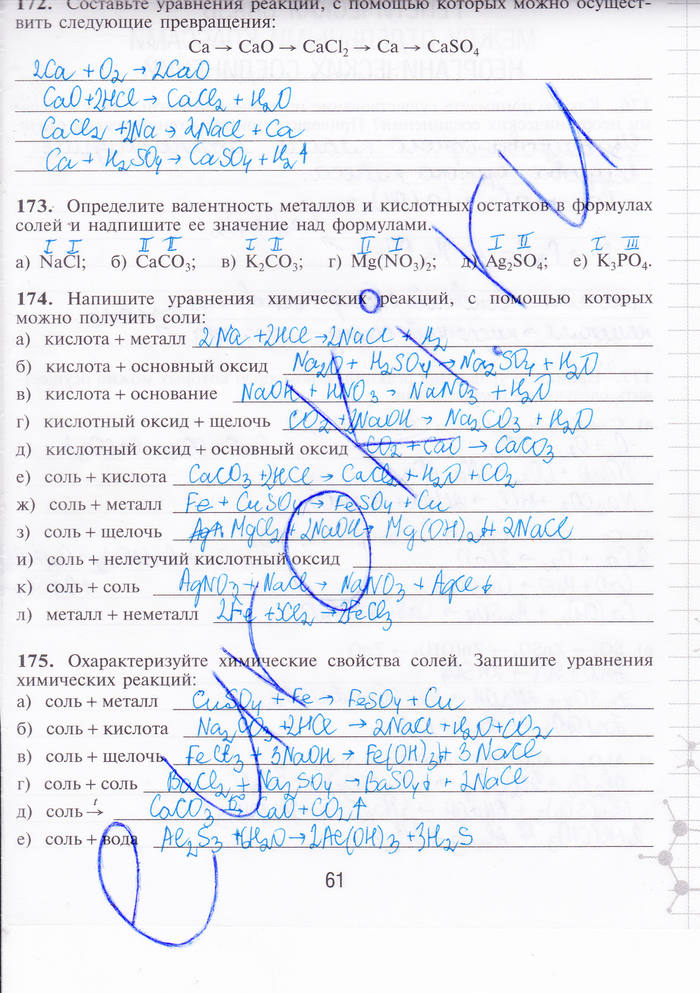 172. Составьте уравнения реакций, с помощью которых можно осущест-
вить следующие превращения:
Ca → CaO → CaCl₂ → Ca → CaSO₄
2Ca + O₂ → 2CaO
CaO + 2HCl → CaCl₂ + H₂O
CaCl₂ + 2Na → 2NaCl + Ca
Ca + H₂SO₄ → CaSO₄ + H₂↑
173. Определите валентность металлов и кислотных остатков в формулах
солей и надпишите ее значение над формулами.
I I II II I II II I I II I III
а) NaCl; б) CaCO₃; в) K₂CO₃; г) Mg(NO₃)₂; д) Ag₂SO₄; е) K₃PO₄.
174. Напишите уравнения химических реакций, с помощью которых
можно получить соли:
а) кислота + металл 2Na + 2HCl → 2NaCl + H₂
б) кислота + основный оксид Na₂O + H₂SO₄ → Na₂SO₄ + H₂O
в) кислота + основание NaOH + HNO₃ → NaNO₃ + H₂O
г) кислотный оксид + щелочь CO₂ + 2NaOH → Na₂CO₃ + H₂O
д) кислотный оксид + основный оксид CO₂ + CaO → CaCO₃
е) соль + кислота CaCO₃ + 2HCl → CaCl₂ + H₂O + CO₂
ж) соль + металл Fe + CuSO₄ → FeSO₄ + Cu
з) соль + щелочь MgCl₂ + 2NaOH → Mg(OH)₂↓ + 2NaCl
и) соль + нелетучий кислотный оксид
к) соль + соль AgNO₃ + NaCl → NaNO₃ + AgCl↓
л) металл + неметалл 2Fe + 3Cl₂ → 2FeCl₃
175. Охарактеризуйте химические свойства солей. Запишите уравнения
химических реакций:
а) соль + металл CuSO₄ + Fe → FeSO₄ + Cu
б) соль + кислота Na₂CO₃ + 2HCl → 2NaCl + H₂O + CO₂
в) соль + щелочь FeCl₃ + 3NaOH → Fe(OH)₃↓ + 3NaCl
г) соль + соль BaCl₂ + Na₂SO₄ → BaSO₄↓ + 2NaCl
д) соль t→ CaCO₃ t°→ CaO + CO₂↑
е) соль + вода Al₂S₃ + 6H₂O → 2Al(OH)₃ + 3H₂S
61